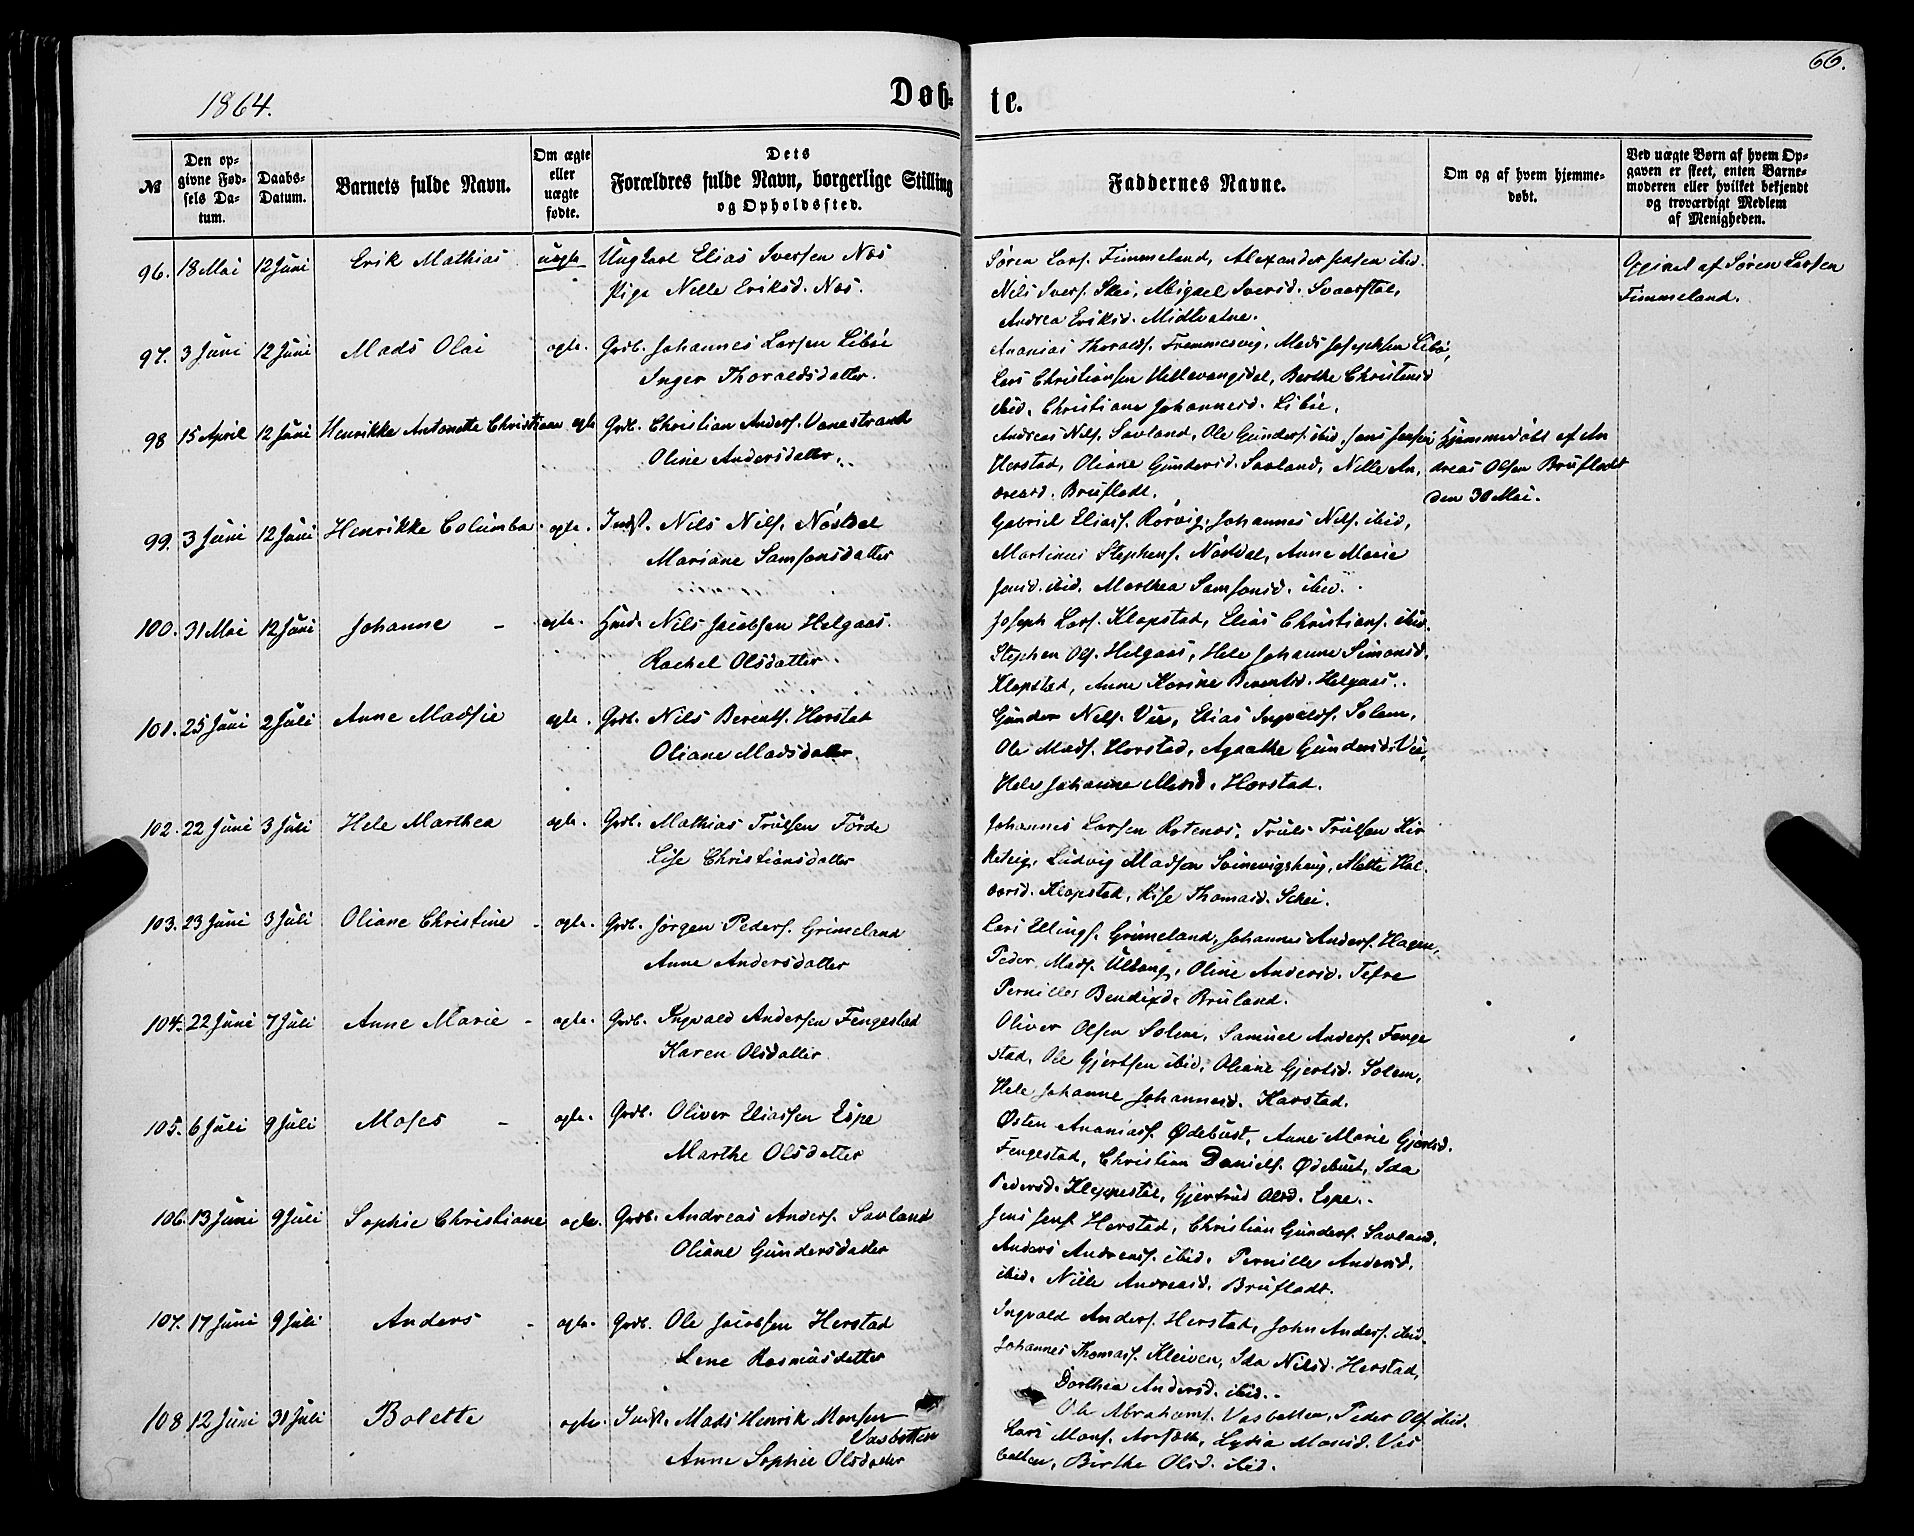 1864.
Døb-
te.
66.
No
Den op-
givne Fød-
sels Da-
tum.
Daabs-
Datum.
Barnets fulde Navn.
Om ægte
eller
uægte
fødte.
Dets
Forældres fulde Navn, borgerlige Stilling
og Opholdssted.
Faddernes Navne.
Om og af hvem hjemme-
døbt.
Ved uægte Børn af hvem Op-
gaven er skeet, enten Barne-
moderen eller hvilket bekjendt
og troværdigt Medlem
af Menigheden.
96. 18 Mai 12 Juni Erik Mathias uægte Ungkarl Elias Iversen Nos
Pige Nille Eriksd. Nos.
Søren Lars. Timmeland, Alexander Jensen ibid.
Nils Ivers. Skei, Abigael Iversd. Svaarstal,
Andrea Eriksd. Midtvatne.
Opgivet af Søren Larsen
Timmeland.
97. 3 Juni 12 Juni Mads Olai ægte. Grdb. Johannes Larsen Libøe
Inger Thoraldsdatter.
Ananias Thoralds. Frammesvig, Mads Josephsen Libø,
Lars Christiansen Hellevangsdal, Berthe Christensd
ibid. Christiane Johannesd. Libøe.
98 15 April 12 Juni Henrikke Antonette Christiane ægte Grdb. Christian Anders. Vonestrand
Oline Andersdatter.
Andreas Nils. Savland, Ole Gunders. ibid, Jens Jensen
Herstad, Oliane Gundersd. Savland, Nille An-
dreasd. Brufladt.
Hjemmedøbt af An
dreas Olsen Brufladt
den 30 Mai.
99. 3 Juni 12 Juni Henrikke Columba ægte. Indst. Nils Nils. Nøstdal
Mariane Samsonsdatter
Gabriel Elias. Rørvig, Johannes Nils. ibid,
Martinus Stephens. Nøstdal, Anne Marie
Jonsd. ibid. Marthea Samsonsd. ibid.
100. 31 Mai 12 Juni Johanne - ægte. Husd. Nils Jacobsen Helgaas.
Rachel Olsdatter.
Joseph Lars. Klopstad, Elias Christians. ibid.
Stephen Ols. Helgaas, Hele Johanne Simonsd.
Klopstad, Anne Karine Berentsd. Helgaas.
101. 25 Juni 2 Juli Anne Madsie ægte. Grdb. Nils Berents. Horstad
Oliane Madsdatter.
Gunder Nils. Vie, Elias Ingvalds. Solem,
Ole Mads. Horstad, Agathe Gundersd. Vie,
Hele Johanne Madsd. Horstad.
102. 22 Juni 3 Juli Hele Marthea ægte. Grdb. Mathias Trulsen Førde
Lise Christiansdatter
Johannes Larsen Rotenæs, Truls Trulsen Kir
keteig, Ludvig Madsen Svinevigshaug, Mette Hal-
vorsd. Klopstad, Lise Thomasd. Skei.
103. 23 Juni 3 Juli Oliane Christine - ægte. Grdb. Jørgen Peders. Grimeland
Anne Andersdatter
Lars Ellings. Grimeland, Johannes Anders. Hagen,
Peder Mads. Ullang, Oline Andersd. Tefre
Pernille Bendixd. Bruland.
104. 22 Juni 7 Juli Anne Marie - ægte. Grdb. Ingvald Andersen Fengestad
Karen Olsdatter
Oliver Olsen Solem, Samuel Anders. Fenge
stad, Ole Gjertsen ibid, Oliane Gjertsd. Solem,
Hele Johanne Johannesd. Horstad.
105. 6 Juli 9 Juli Moses - ægte. Grdb. Oliver Eliassen Espe
Marthe Olsdatter
Østen Ananias. Ødebust, Anne Marie Gjertsd.
Fengestad, Christian Daniels. Ødebust, Ida
Pedersd. Kleppestøl, Gjertrud Olsd. Espe.
106. 13 Juni 9 Juli Sophie Christiane ægte. Grdb. Andreas Anders. Savland
Oliane Gundersdatter
Jens Jens. Herstad, Christian Gunders. Savland,
Anders Andreas. ibid. Pernille Andersd.
ibid. Nille Andreasd. Brufladt.
107. 17 Juni 9 Juli Anders - ægte. Grdb. Ole Jacobsen Herstad
Lene Rasmusdatter
Ingvald Anders. Herstad, John Anders. ibid.
Johannes Thomas. Kleiven, Ida Nilsd. Herstad,
Dorthea Andersd. ibid.
108 12 Juni 31 Juli Bolette ægte. Indst. Mads Henrik Monsen
Vasbotten
Anne Sophie Olsdatter
Ole Abrahams. Vasbotten, Peder Ols. ibid.
Lars Mons. Lydia Monsd. Vas
botten, Birthe Olsd. ibid.